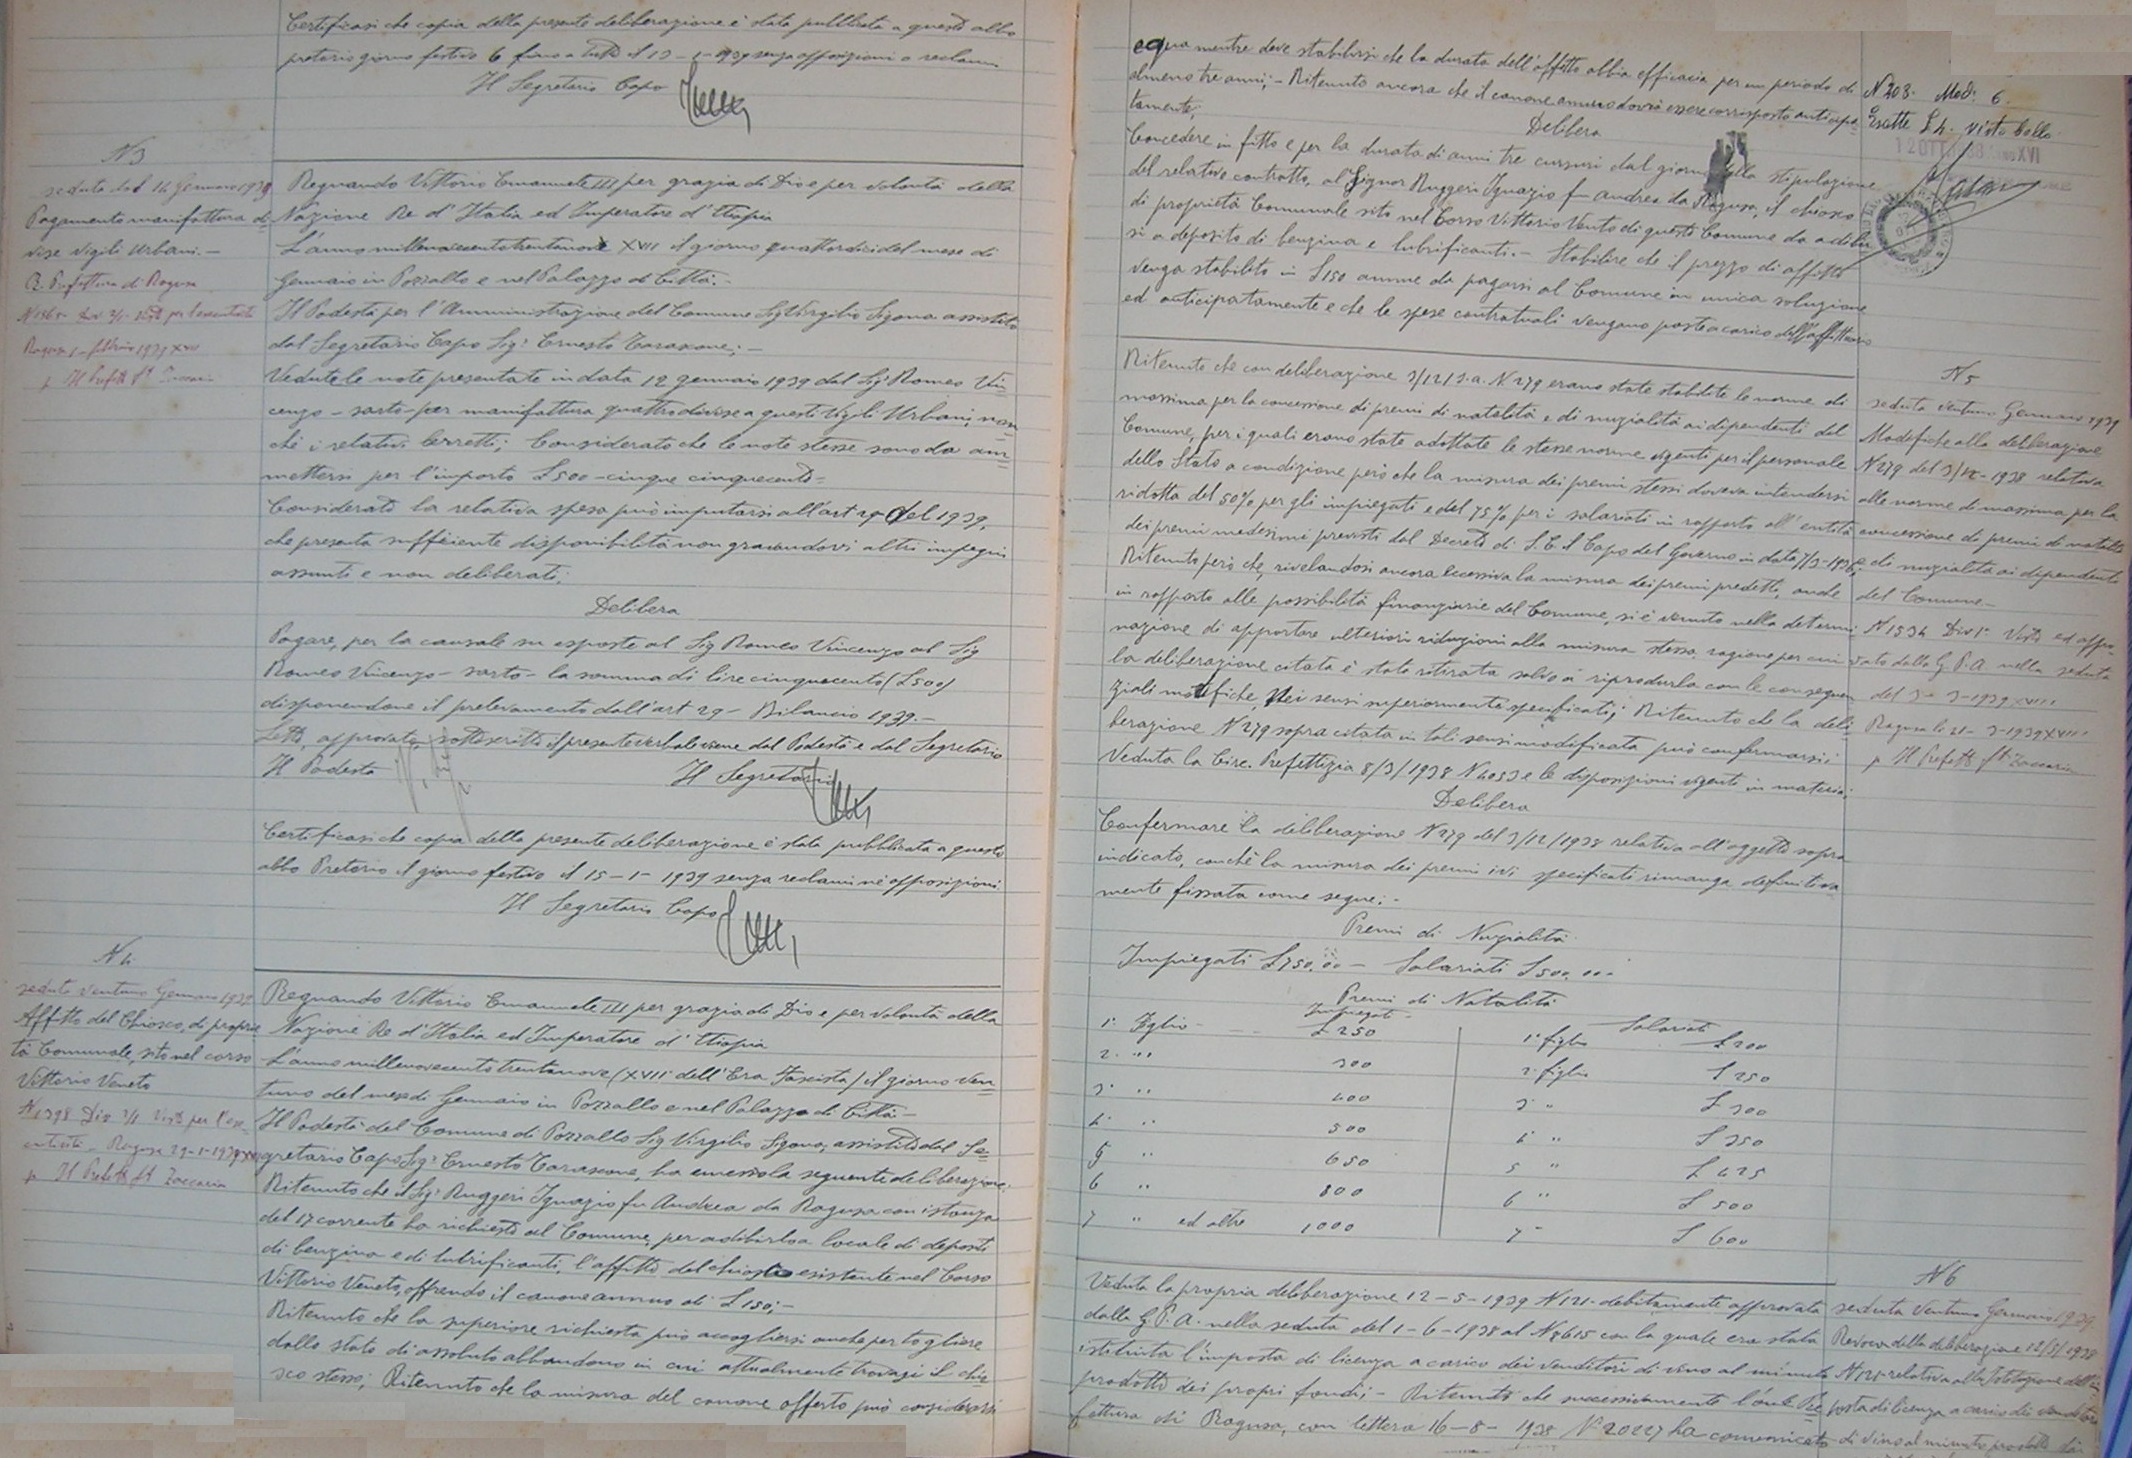 Certificasi che copia della presente deliberazione è stata pubblicata a questo albo
pretorio giorno festivo 6 fino a tutto il 13-1-1939 senza opposizioni o reclami
Il Segretario Capo
N 3
seduta del 14 Gennaio 1939
Pagamento manifattura di-
vise Vigili Urbani.-
R. Prefettura di Ragusa
Visto per l'esecutività
Ragusa 1- febbraio 1939 XVII
p Il Prefetto ft Zaccaria
Regnando Vittorio Emanuele III per grazia di Dio e per volontà della
Nazione Re d'Italia ed Imperatore d'Etiopia
L'anno millenovecentotrentanove XVII il giorno quattordici del mese di
Gennaio in Pozzallo e nel Palazzo di Città.-
Il Podestà per l'Amministrazione del Comune Sig. Virgilio Sigona assistito
dal Segretario Capo Sigr Ernesto Tarascone;-
Vedute le note presentate in data 12 gennaio 1939 dal Sigr Romeo Vin
cenzo - sarto - per manifattura quattro divise a questi Vigili Urbani, non
chè i relativi berretti; Considerato che le note stesse sono da am
mettersi per l'importo £500 - cinque cinquecento -
Considerato la relativa spesa può imputarsi all'art 29 del 1939,
che presenta sufficiente disponibilità non gravandovi altri impegni
assunti e non deliberati;
Delibera
Pagare, per la causale su esposte al Sig Romeo Vincenzo al Sig
Romeo Vincenzo - sarto - la somma di lire cinquecento (£500)
disponendone il prelevamento dall'art 29 - Bilancio 1939.-
Letto, approvato, sottoscritto il presente verbale viene dal Podestà e dal Segretario
Il Podestà Il Segretario
Certificasi che copia della presente deliberazione è stata pubblicata a questo
albo Pretorio il giorno festivo il 15-1-1939 senza reclami nè opposizioni
Il Segretario Capo
N 4
seduta ventuno Gennaio 1939
Affitto del Chiosco, di proprie
tà Comunale, sito nel corso
Vittorio Veneto
N 1398 Div. 2/1 Visto per l'ese-
cutività - Ragusa 29-1-1939 XVII
p Il Prefetto ft Zaccaria
Regnando Vittorio Emanuele III per grazia di Dio e per volontà della
Nazione Re d'Italia ed Imperatore d'Etiopia
L'anno millenovecentotrentanove (XVII dell'Era Fascista) il giorno ven
tuno del mese di Gennaio in Pozzallo e nel Palazzo di Città -
Il Podestà del Comune di Pozzallo Sig Virgilio Sigona, assistito dal Se
gretario Capo Sigr Ernesto Tarascone, ha emesso la seguente deliberazione:
Ritenuto che il Sigr Ruggeri Ignazio fu Andrea da Ragusa con istanza
del 17 corrente ha richiesto al Comune, per adibirlo a locale di deposito
di benzina e di lubrificanti, l'affitto del chiosco esistente nel Corso
Vittorio Veneto, offrendo il canone annuo di £ 150;-
Ritenuto che la superiore richiesta può accogliersi anche per togliere
dallo stato di assoluto abbandono in cui attualmente trovasi il chio
sco stesso; Ritenuto che la misura del canone offerto può considerarsi
equa mentre deve stabilirsi che la durata dell'affitto abbia efficacia per un periodo di
almeno tre anni;- Ritenuto ancora che il canone annuo dovrà essere corrisposto anticipa
tamente;
Delibera
Concedere in fitto e per la durata di anni tre cursuri dal giorno della stipulazione
del relativo contratto, al Signor Ruggeri Ignazio fu Andrea da Ragusa, il chiosco
di proprietà Comunale sito nel Corso Vittorio Veneto di questo Comune da adibir
si a deposito di benzina e lubrificanti.- Stabilire che il prezzo di affitto
venga stabilito in £150 annue da pagarsi al Comune in unica soluzione
ed anticipatamente e che le spese contrattuali vengano poste a carico dell'affittuario
N 208. Mod: 6.
Esatte £ 4. visto bollo
12 OTT 1938 Anno XVI
Ritenuto che con deliberazione 3/12/s.a. N 279 erano state stabilite le norme di
massima per la concessione di premi di natalità e di nuzialità ai dipendenti del
Comune, per i quali erano state adottate le stesse norme vigenti per il personale
dello Stato a condizione però che la misura dei premi stessi doveva intendersi
ridotta del 50% per gli impiegati e del 75% per i salariati in rapporto all'entità
dei premi medesimi previsti dal Decreto di S.E. il Capo del Governo in data 7/3-1936;
Ritenuto però che, rivelandosi ancora eccessiva la misura dei premi predetti, anche
in rapporto alle possibilità finanziarie del Comune, si è venuto nella determi
nazione di apportare ulteriori riduzioni alla misura stessa, ragione per cui
la deliberazione citata è stata ritirata salvo a riprodurla con le conseguen
ziali modifiche, nei sensi superiormente specificati; Ritenuto che la deli
berazione N 279 sopra citata in tali sensi modificata può confermarsi;
Veduta la Circ. Prefettizia 8/3/1938 N 4053 e le disposizioni vigenti in materia;
Delibera
Confermare la deliberazione N 279 del 3/12/1938 relativa all'oggetto sopra
indicato, conchè la misura dei premi ivi specificati rimanga definitiva
mente fissata come segue:-
Premi di Nuzialità
Impiegati £750,00 - Salariati £500,00-
Premi di Natalità
Impiegati Salariati
1° Figlio £ 250 1° figlio £ 200
2. " 300 2. figlio £ 250
3 " 400 3 " £ 300
4 " 500 4 " £ 350
5 " 650 5 " £ 425
6 " 800 6 " £ 500
7 " ed altre 1000 7 - £ 600
N 5
seduta ventuno Gennaio 1939
Modifiche alla deliberazione
N 279 del 3/12-1938 relativa
alle norme di massima per la
concessione di premi di natalità
e di nuzialità ai dipendenti
del Comune -
N 1534 Div 1° Visto ed appro
vato dalla G.P.A. nella seduta
del 3-3-1939 XVII
Ragusa li 21-3-1939 XVII
p Il Prefetto ft Zaccaria
Veduta la propria deliberazione 12-5-1939 N 121- debitamente approvata
dalla G.P.A. nella seduta del 1-6-1938 al N 8615 con la quale era stata
istituita l'imposta di licenza a carico dei venditori di vino al minuto
prodotto dei propri fondi;- Ritenuto che successivamente l'On.le Pre
fettura di Ragusa, con lettera 16-8-1938 N° 20227 ha comunicato
N 6
seduta Ventuno Gennaio 1939
Revoca della deliberazione 12/5/1938
N 121 relativa alla Istituzione dell'im
posta di licenza a carico dei venditori
di vino al minuto prodotto dei